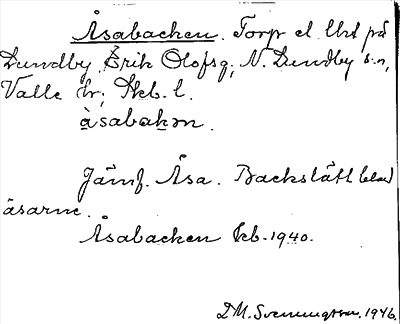 Åsabacken. Torp el. Uts på
Lundby, Erik Olofsg; N. Lundby s:n,
Valle hr; Skb. l.
åsabakən.
Jämf. Åsa. Backslätt bland
åsarne.
Åsabacken kb. 1940.
D.M. Svenningsson. 1946.